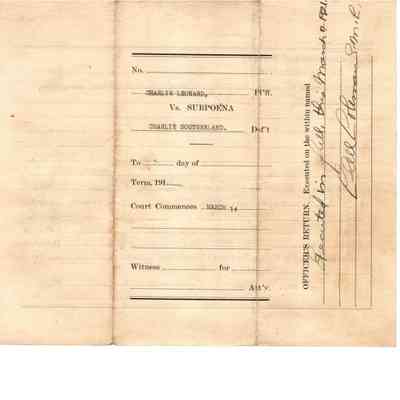 No.
CHARLIE LEONARD, Pl'ff.
Vs. SUBPOENA
CHARLIE SOUTHERLAND. Def't
To day of
Term, 191
Court Commences MARCH 14
Witness for
Att'y.
OFFICER'S RETURN. Executed on the within named
Executed in full, this March
Coleman